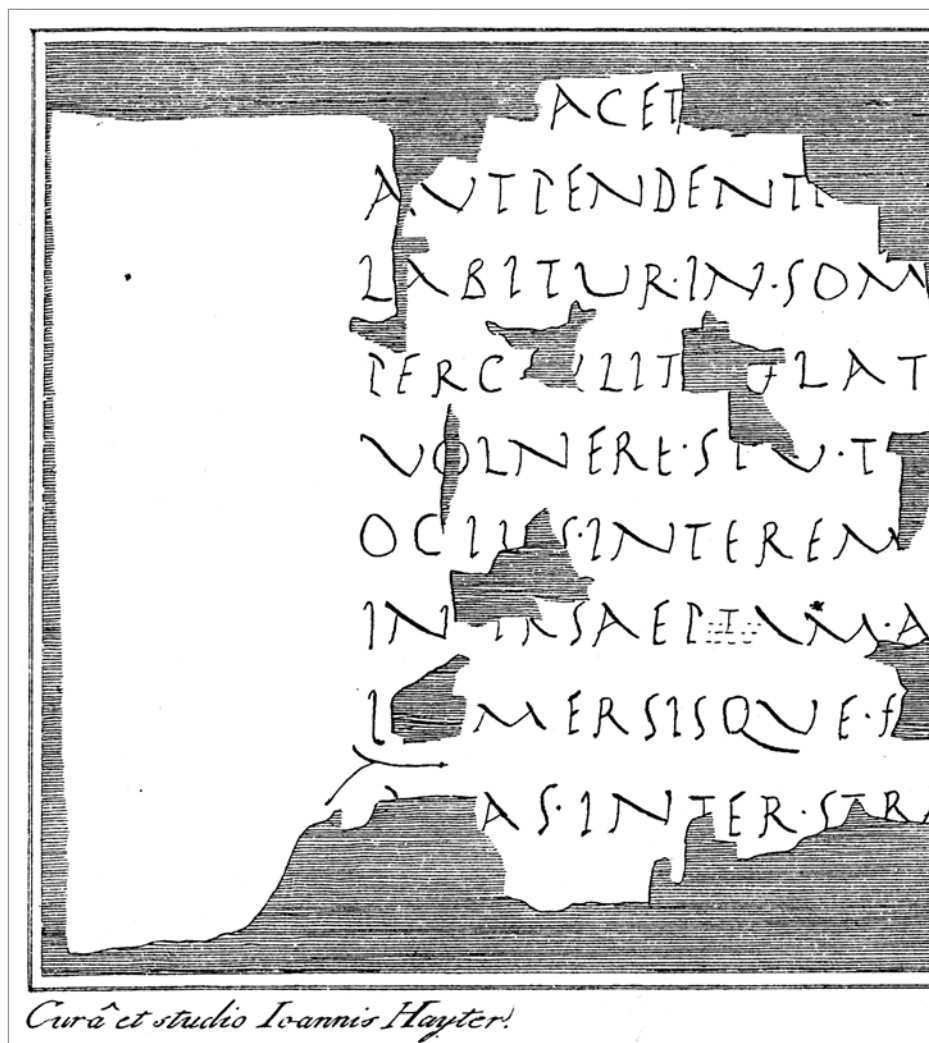 ACET
AVT PENDENTE
LABITUR·IN·SOM
PERC LIT FLAT
VOLNERE·SIV·T
OCIUS·INTEREM
IN
MERSISQVE·F
AS·INTER·STRA
Curâ et studio Ioannis Hayter.